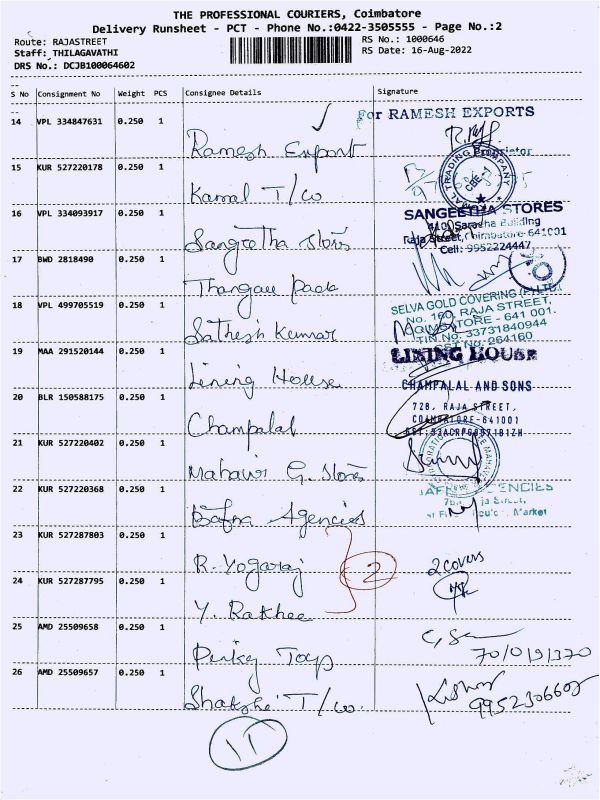 THE PROFESSIONAL COURIERS, Coimbatore
Delivery Runsheet - PCT - Phone No.:0422-3505555 - Page No.:2
Route: RAJASTREET
Staff: THILAGAVATHI
DRS No.: DCJB100064602
RS No.: 1000646
RS Date: 16-Aug-2022
S No Consignment No Weight PCS Consignee Details Signature
14 VPL 334847631 0.250 1 Ramesh Export
For RAMESH EXPORTS
Proprietor
15 KUR 527220178 0.250 1 Kamal T/co
TRADING COMPANY
CBE-1
16 VPL 334093917 0.250 1 Sangeetha Stores
SANGEETHA STORES
Building
Raja Street, Coimbatore-641001
Cell: 9952224447
17 BWD 2818490 0.250 1
18 VPL 499705519 0.250 1 Sathesh Kumar
SELVA GOLD COVERING (P) LTD
No. 160, RAJA STREET,
COIMBATORE - 641 001.
TIN No. 33731840944
CST No. 264160
19 MAA 291520144 0.250 1 Lining House
LINING HOUSE
20 BLR 150588175 0.250 1 Champalal
CHAMPALAL AND SONS
728, RAJA STREET,
COIMBATORE-641001
21 KUR 527220402 0.250 1 Mahavir G. Stores
22 KUR 527220368 0.250 1 Bafna Agencies
Market
23 KUR 527287803 0.250 1 R. Yogaraj
2
2 covers
24 KUR 527287795 0.250 1 Y. Rakhee
25 AMD 25509658 0.250 1 Pinky Toys
26 AMD 25509657 0.250 1 T/co.